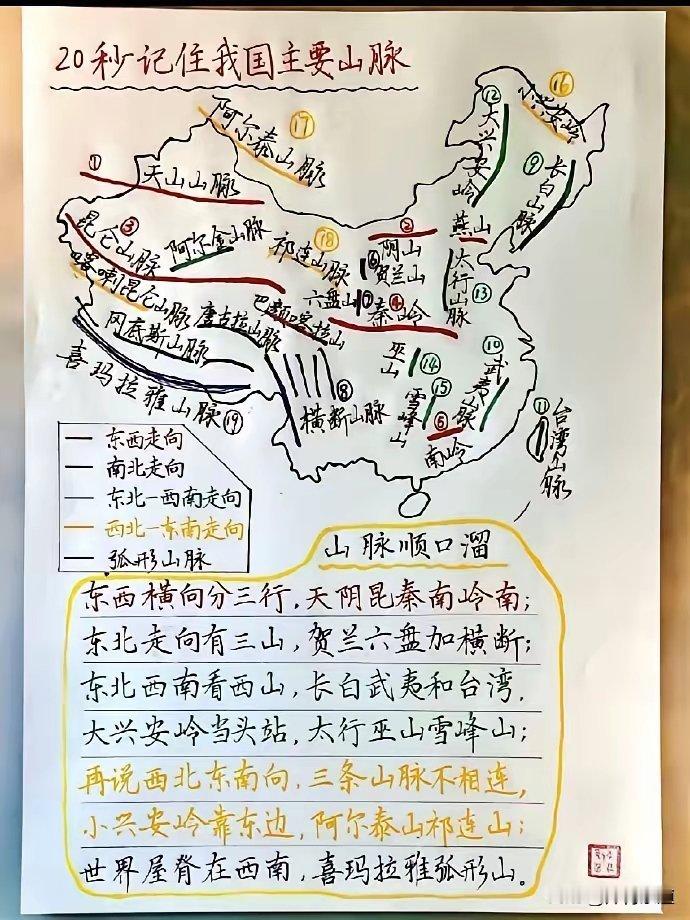 20秒记住我国主要山脉
⑯
小兴安岭
⑰
阿尔泰山脉
⑫
大兴安岭
①
天山山脉
⑨
长白山脉
③
昆仑山脉
阿尔金山脉
⑱
祁连山脉
②
阴山
燕山
⑥
贺兰山
太行山脉
⑬
喀喇昆仑山脉
六盘山
⑦
④
秦岭
唐古拉山脉
巴颜喀拉山
冈底斯山脉
喜玛拉雅山脉
⑲
巫山
⑭
⑩
武夷山脉
⑧
横断山脉
⑮
雪峰山
⑤
南岭
⑪
台湾山脉
东西走向
南北走向
东北一西南走向
西北一东南走向
弧形山脉
山脉顺口溜
东西横向分三行，天阴昆秦南岭南；
东北走向有三山，贺兰六盘加横断；
东北西南看西山，长白武夷和台湾，
大兴安岭当头站，太行巫山雪峰山；
再说西北东南向，三条山脉不相连，
小兴安岭靠东边，阿尔泰山祁连山；
世界屋脊在西南，喜玛拉雅弧形山。